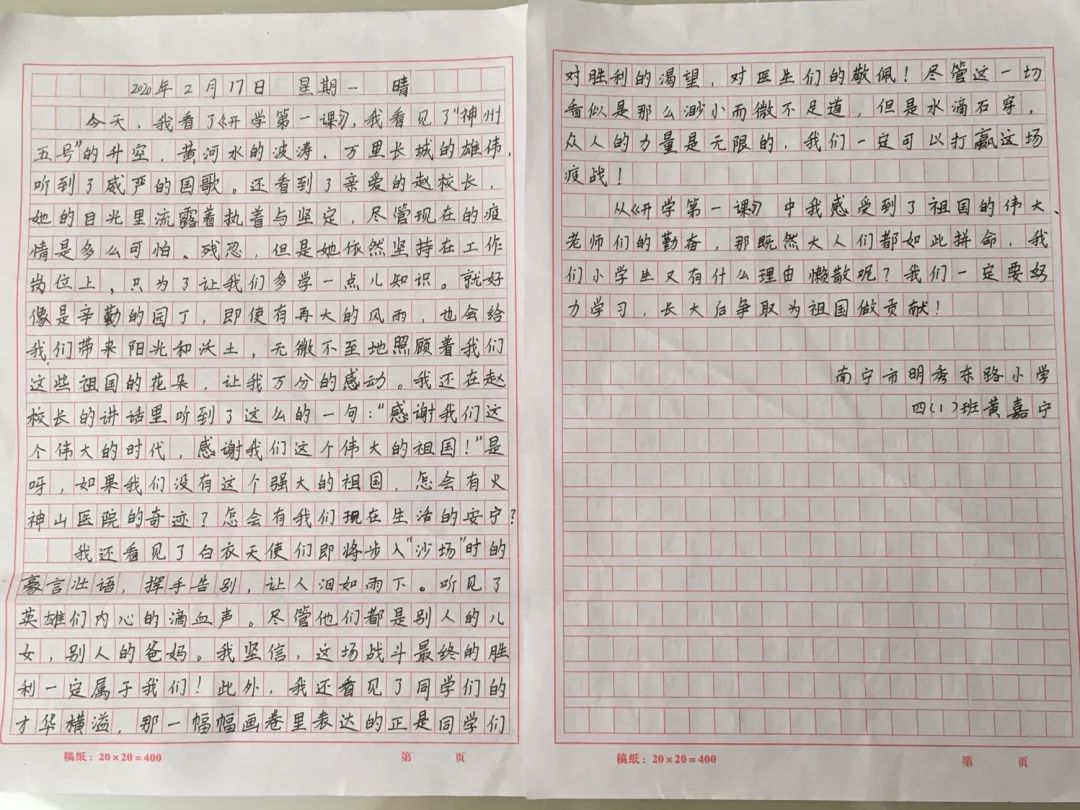 2020年2月17日 星期一 晴
今天，我看了《开学第一课》，我看见了“神州
五号”的升空，黄河水的波涛，万里长城的雄伟，
听到了威严的国歌。还看到了亲爱的赵校长，
她的目光里流露着执着与坚定，尽管现在的疫
情是多么可怕、残忍，但是她依然坚持在工作
岗位上，只为了让我们多学一点儿知识。就好
像是辛勤的园丁，即使有再大的风雨，也会给
我们带来阳光和沃土，无微不至地照顾着我们
这些祖国的花朵，让我万分的感动。我还在赵
校长的讲话里听到了这么的一句：“感谢我们这
个伟大的时代，感谢我们这个伟大的祖国！”是
呀，如果我们没有这个强大的祖国，怎会有火
神山医院的奇迹？怎会有我们现在生活的安宁？
我还看见了白衣天使们即将步入“沙场”时的
豪言壮语，挥手告别，让人泪如雨下。听见了
英雄们内心的滴血声。尽管他们都是别人的儿
女，别人的爸妈。我坚信，这场战斗最终的胜
利一定属于我们！此外，我还看见了同学们的
才华横溢，那一幅幅画卷里表达的正是同学们
稿纸：20×20=400 第 页
对胜利的渴望，对医生们的敬佩！尽管这一切
看似是那么渺小而微不足道，但是水滴石穿，
众人的力量是无限的，我们一定可以打赢这场
疫战！
从《开学第一课》中我感受到了祖国的伟大、
老师们的勤奋，那既然大人们都如此拼命，我
们小学生又有什么理由懒散呢？我们一定要努
力学习，长大后争取为祖国做贡献！
南宁市明秀东路小学
四（1）班黄嘉宁
稿纸：20×20=400 第 页